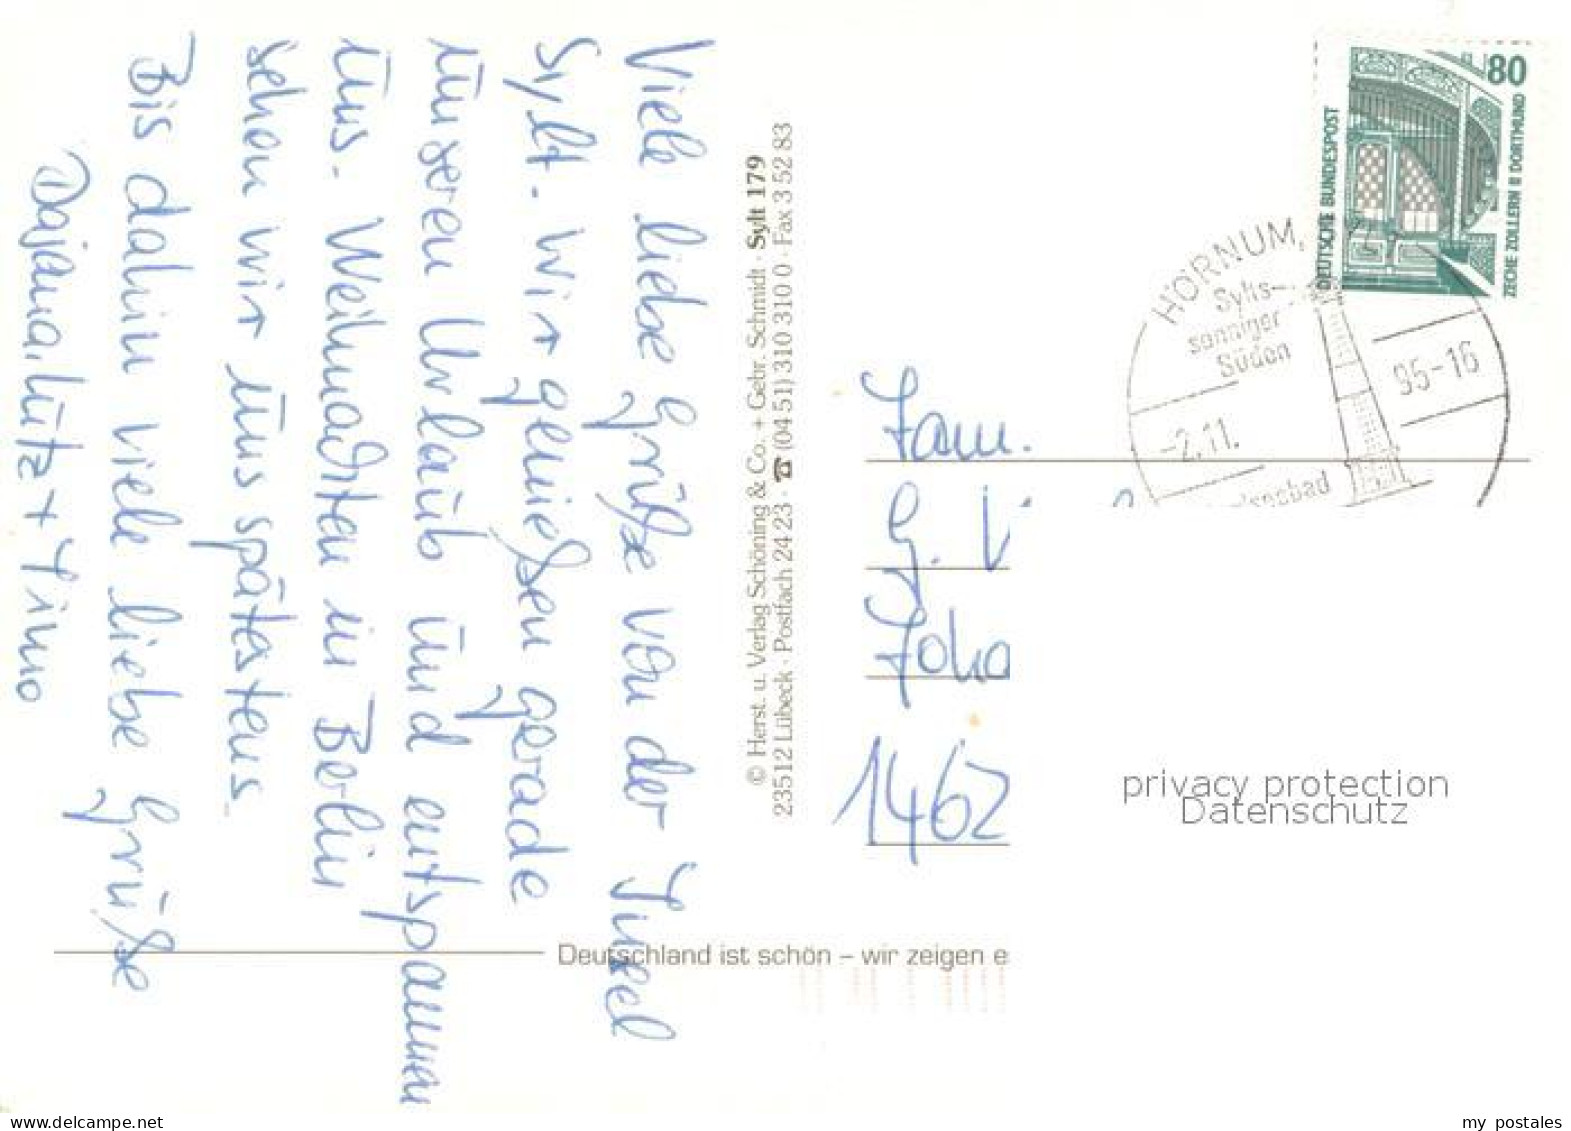 Viele liebe Grüße von der Insel
Sylt. Wir genießen gerade
unseren Urlaub und entspannen
uns. Weihnachten in Berlin
sehen wir uns spätestens.
Bis dahin viele liebe Grüße
Dajana, Lutz + Timo
© Herst. u. Verlag Schöning & Co. + Gebr. Schmidt · Sylt 179
23512 Lübeck · Postfach 24 23 · ☎ (04 51) 310 310 0 · Fax 3 52 83
Deutschland ist schön – wir zeigen e
80
DEUTSCHE BUNDESPOST
ZECHE ZOLLERN II DORTMUND
HÖRNUM,
Sylts-
sonniger
Süden
-2.11.
95-16
Fam.
G. V
Joha
1462
privacy protection
Datenschutz
Besuchen Sie uns auf www.ansichtskartenversand.com
my_postales